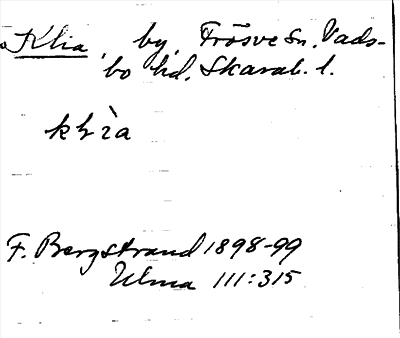 Klia, by, Frösve Sn, Vads-
bo hd, Skarab. l.
Ulma 111:315
F. Bergstrand 1898-99